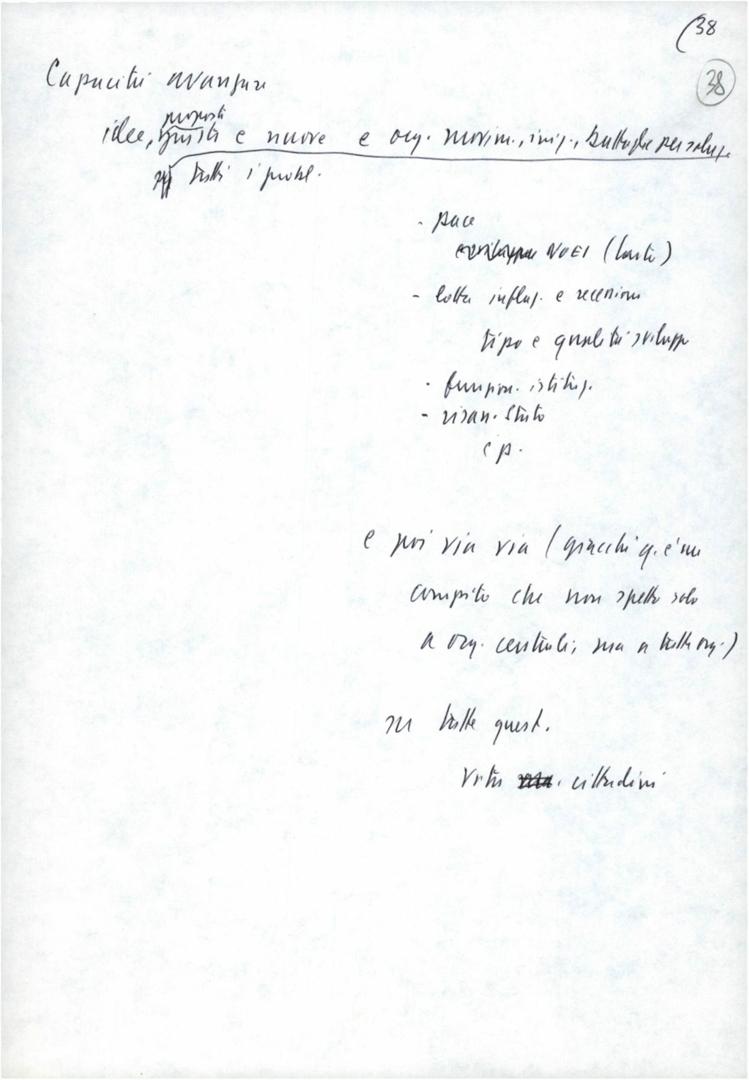 (38
38
Capacità avanzare
proposte
idee, giuste e nuove e org. movim., iniz., battaglie per svilupp
su tutti i probl.
- pace
NOEI (Brandt)
- lotta inflaz. e recessione
tipo e qualità sviluppo
- funzion. istituz.
- risan. Stato
e p.
e poi via via (giacché q. è un
compito che non spetta solo
a org. centrali, ma a tutte org.)
su tutte quest.
vita cittadini